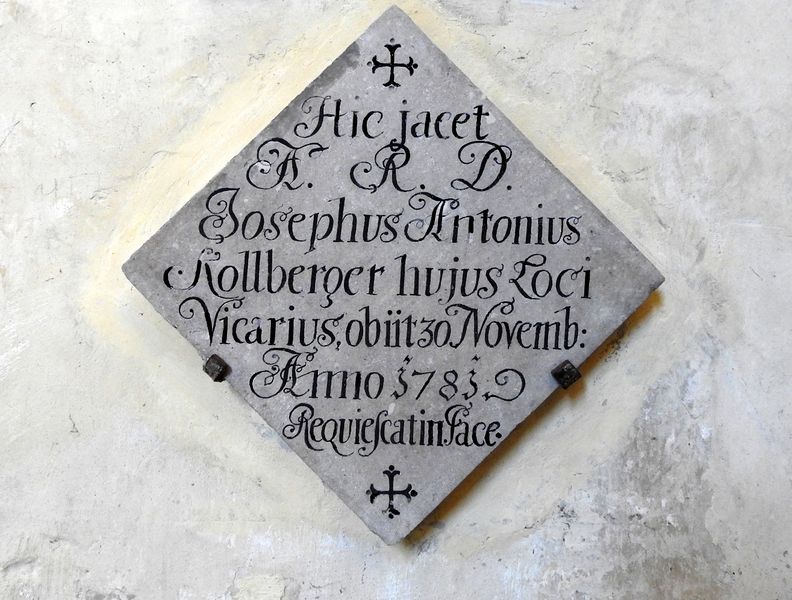 Hic jacet
A. R. D.
Josephus Antonius
Kollberger hujus Loci
Vicarius, obiit 30 Novemb:
Anno 1781.
Requiescat in Pace.